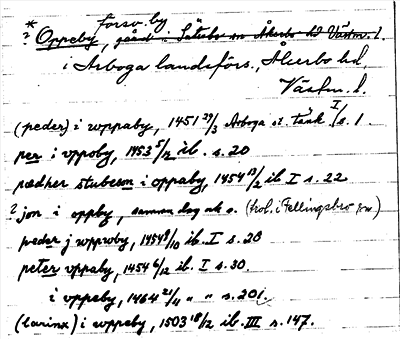 * försv. by
? Oppeby, gård i Säterbo sn Åkerbo hd Västm. l.
i Arboga landsförs., Åkerbo hd,
Västm. l.
(peder) i wppaby, 1451 29/3 Arboga st. tänk I s. 1.
per i vppoby, 1453 5/12 ib. s. 20
pædher stubeson i oppaby, 1454 13/2 ib. I s. 22
? jon i oppby, samma dag ak s. (trol. i Fellingsbro sn)
peder j wpproby, 1454 8/10 ib. I s. 28
peter vppaby, 1454 6/12 ib. I s. 30.
i vppeby, 1464 21/4 " " s. 201.
(larinx) i wppeby, 1503 18/2 ib. III s. 147.